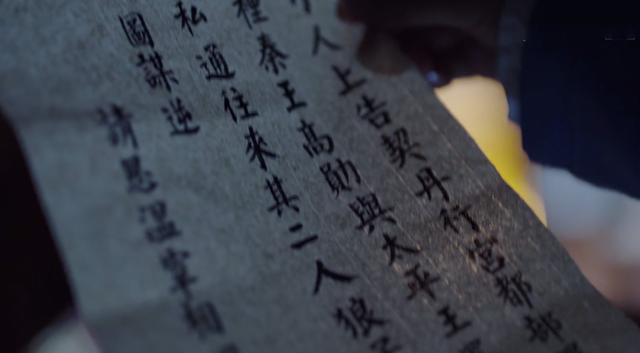 人上告契丹行宮都部
秦王高勛與太平王
私通往來其二人狼
圖謀逆
請思溫宰相